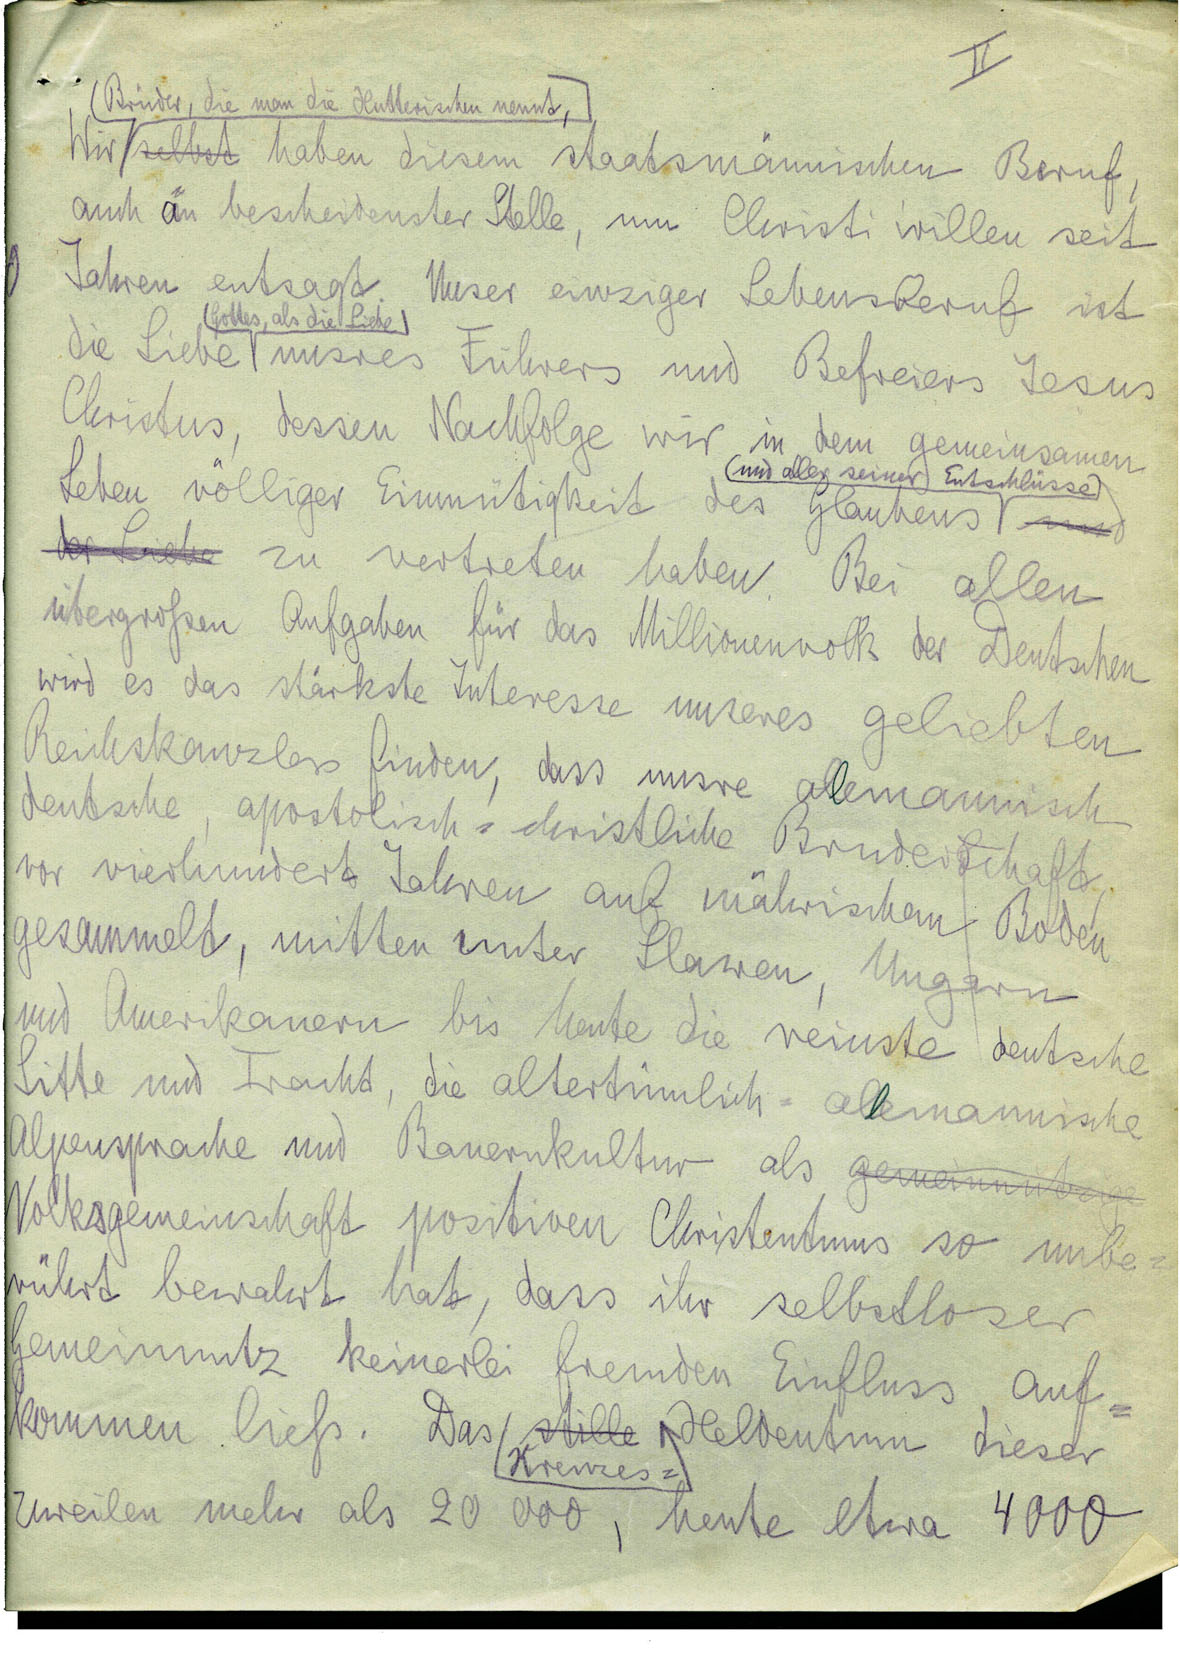 II
(Brüder, die man die Hutterischen nennt,)
Wir selbst haben diesem staatsmännischen Beruf,
auch an bescheidenster Stelle, um Christi willen seit
Jahren entsagt. Unser einziger Lebensberuf ist
(Gottes, als die Liebe)
die Liebe unsres Führers und Befreiers Jesus
Christus, dessen Nachfolge wir in dem gemeinsamen
(und aller seiner Entschlüsse)
Leben völliger Einmütigkeit des Glaubens und
der Liebe zu vertreten haben. Bei allen
übergroßen Aufgaben für das Millionenvolk der Deutschen
wird es das stärkste Interesse unseres geliebten
Reichskanzlers finden, dass unsre allemannisch
deutsche, apostolisch=christliche Bruderschaft,
vor vierhundert Jahren auf mährischem Boden
gesammelt, mitten unter Slawen, Ungarn
und Amerikanern bis heute die reinste deutsche
Sitte und Tracht, die altertümlich=allemannische
Alpensprache und Bauernkultur als gemeinnützige
Volksgemeinschaft positiven Christentums so unbe=
rührt bewahrt hat, dass ihr selbstloser
Gemeinnutz keinerlei fremden Einfluss auf=
kommen ließ. Das stille Heldentum dieser
(Kreuzes=)
zuweilen mehr als 20 000, heute etwa 4000